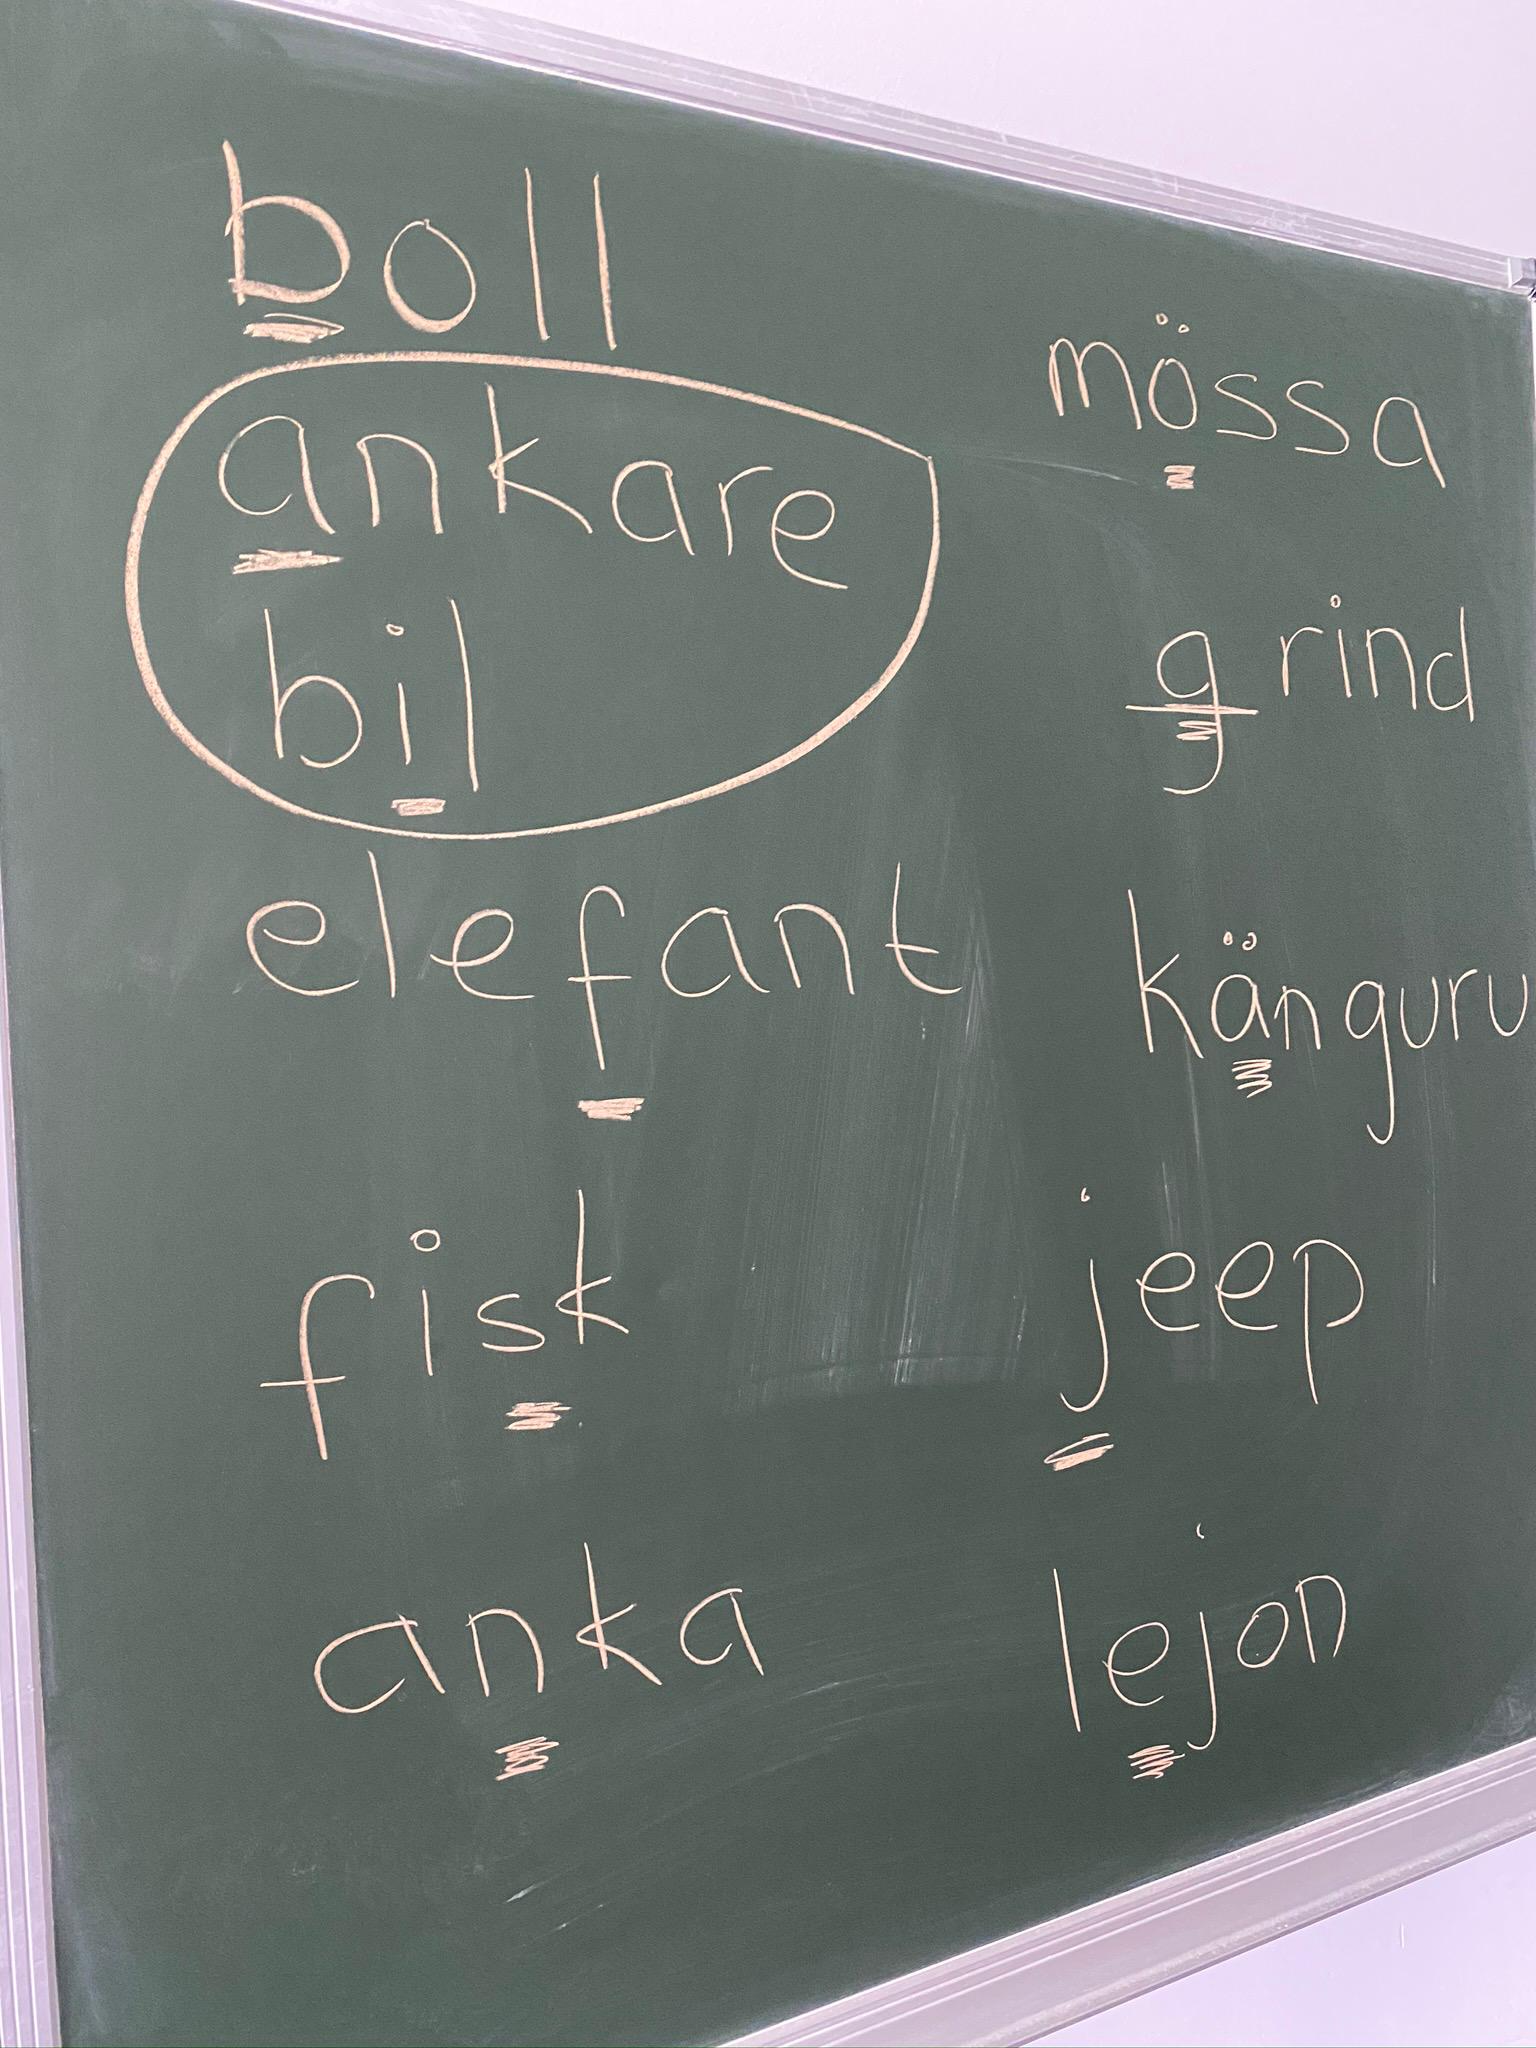 boll
ankare
bil
elefant
fisk
anka
mössa
grind
känguru
jeep
lejon